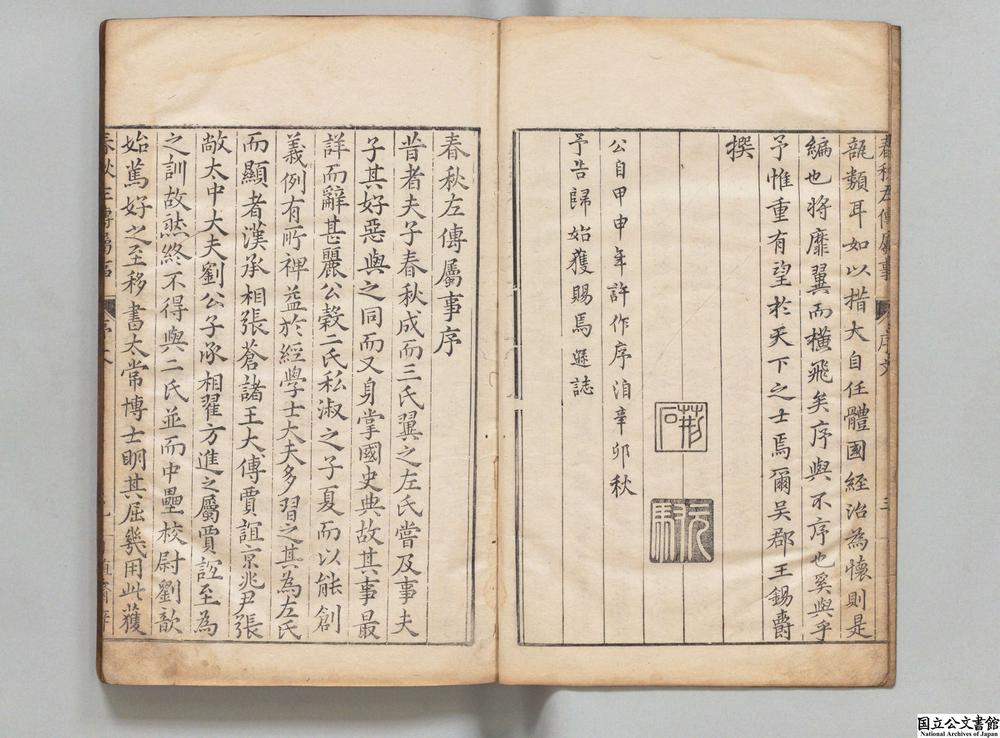 春秋左傳屬事 序文 三
瓿類耳如以措大自任體國經治為懷則是
編也將靡翼而橫飛矣序與不序也奚與乎
予惟重有望於天下之士焉爾吳郡王錫爵
撰
公自甲申年許作序洎辛卯秋
予告歸始獲賜焉遜誌
荊石
元馭
春秋左傳屬事序
昔者夫子春秋成而三氏翼之左氏嘗及事夫
子其好惡與之同而又身掌國史典故其事最
詳而辭甚麗公穀二氏私淑之子夏而以能創
義例有所裨益於經學士大夫多習之其為左氏
而顯者漢丞相張蒼諸王大傅賈誼京兆尹張
敞太中大夫劉公子丞相翟方進之屬賈誼至為
之訓故然終不得與二氏並而中壘校尉劉歆
始篤好之至移書太常博士明其屈幾用此獲
春秋左傳屬事
国立公文書館
National Archives of Japan